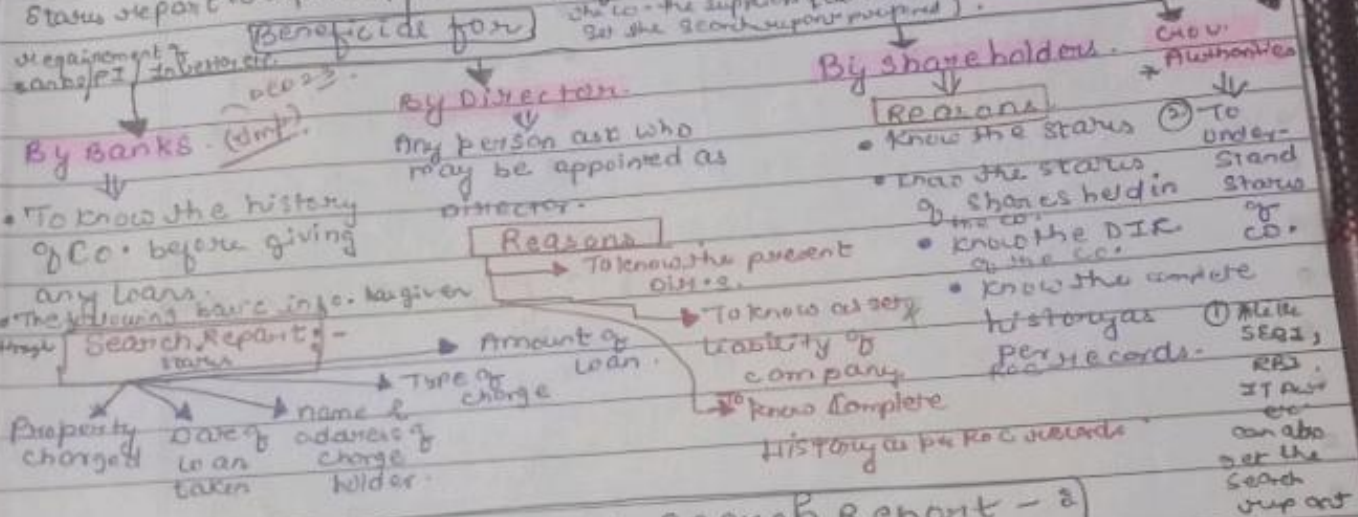 Status report
Beneficide for
get the search report prepared).
Requirement of
banks/FI/
DEC 23.
By Banks. (Imp).
• To know the history
of Co. before giving
any loans.
• The following basic info. has given
through Search Report :-
status
Property
charged
Date of
loan
taken
name &
address of
charge
holder.
Type of
charge
Amount of
loan.
By Director.
Any person ask who
may be appointed as
DIRECTOR.
Reasons
To know the present
To know asset &
Liability of
company
To know Complete
History as per ROC records
By shareholders.
Reasons
• Know the status
• know the status
of shares held in
the co.
• know the DIR
of the co.
• know the complete
history as
per records.
Gov.
* Authorities
② To
under-
stand
status
of
co.
① All the
SEBI,
RBI,
IT Aut
etc
can also
get the
search
report
Report - 2